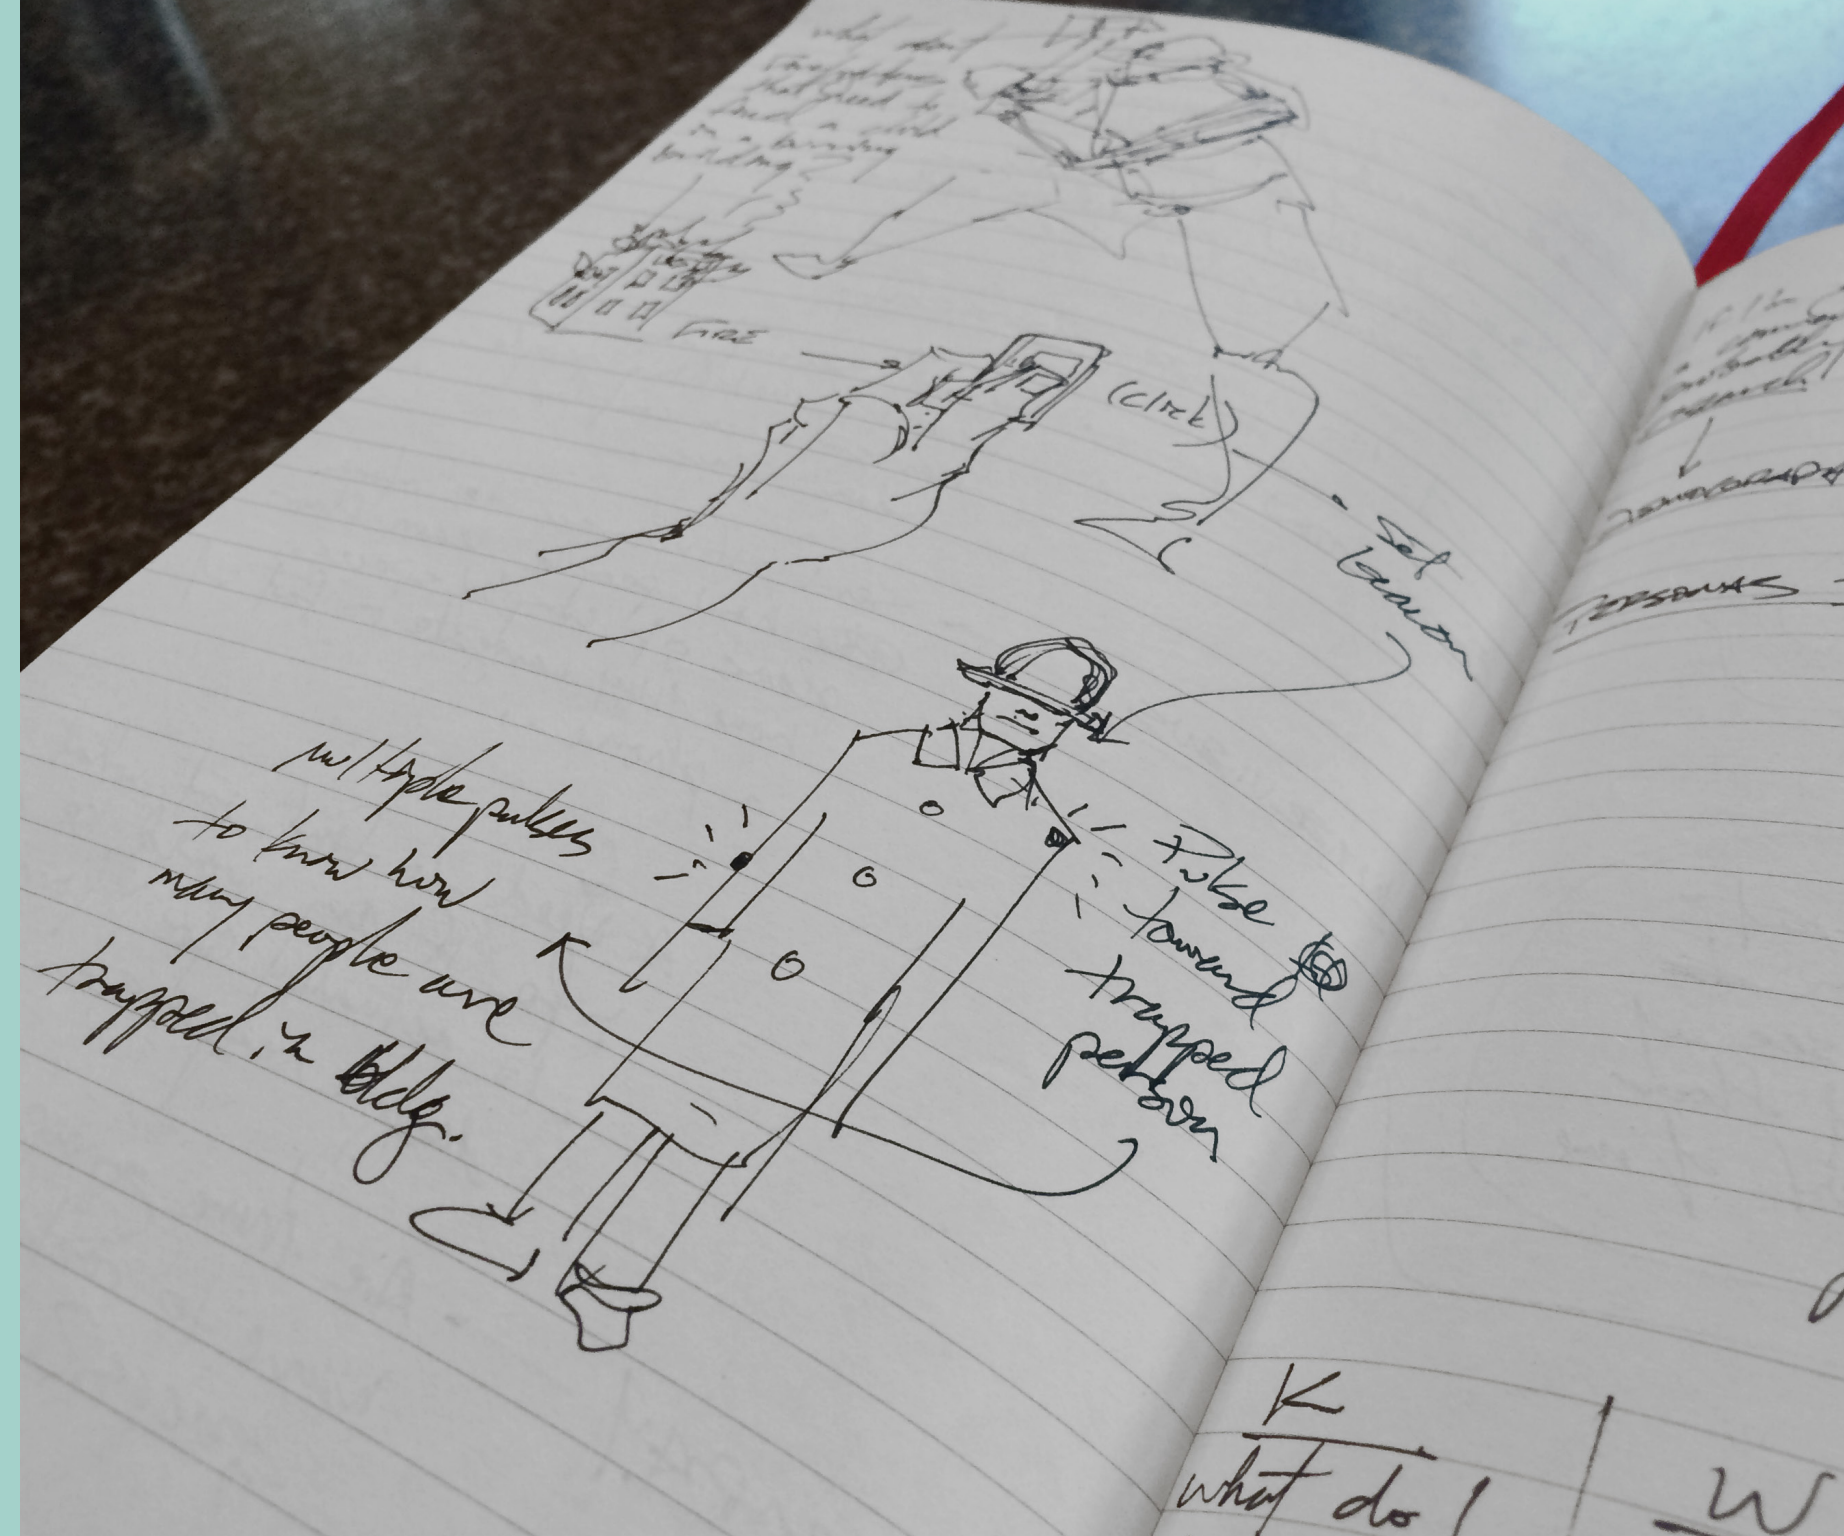 what about
that need to
find a child
in a burning
building?
FIRE
(click)
Set
beacon
multiple pulses
to know how
many people are
trapped in bldg.
Pulse
toward
trapped
person
search
PERSONAS
K
what do I
W